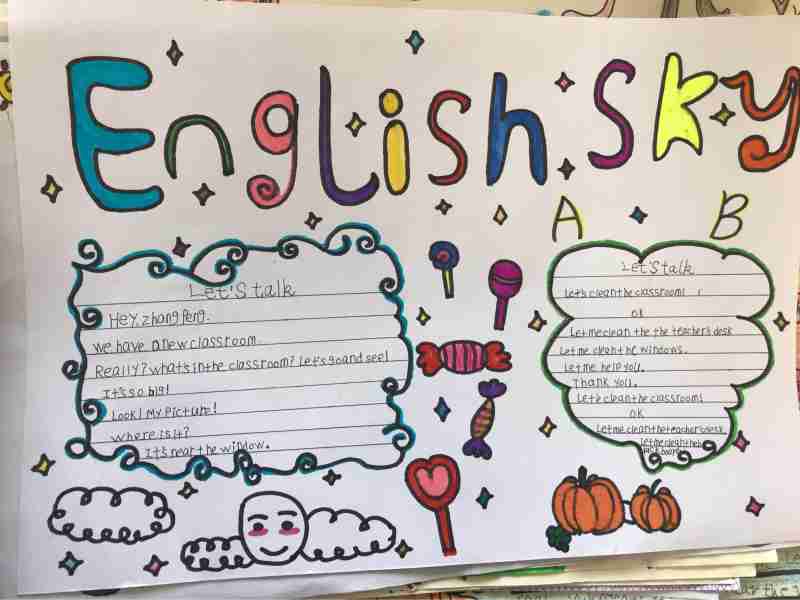 English Sky
A B
Let's talk
Hey, Zhang Peng.
We have a new classroom.
Really? What's in the classroom? Let's go and see!
It's so big!
Look! My picture!
Where is it?
It's near the window.
Let's talk
Let's clean the classroom!
OK
Let me clean the the teacher's desk
Let me clean the windows.
Let me help you.
Thank you.
Let's clean the classroom!
OK
Let me clean the teacher's desk
Let me clean the
board